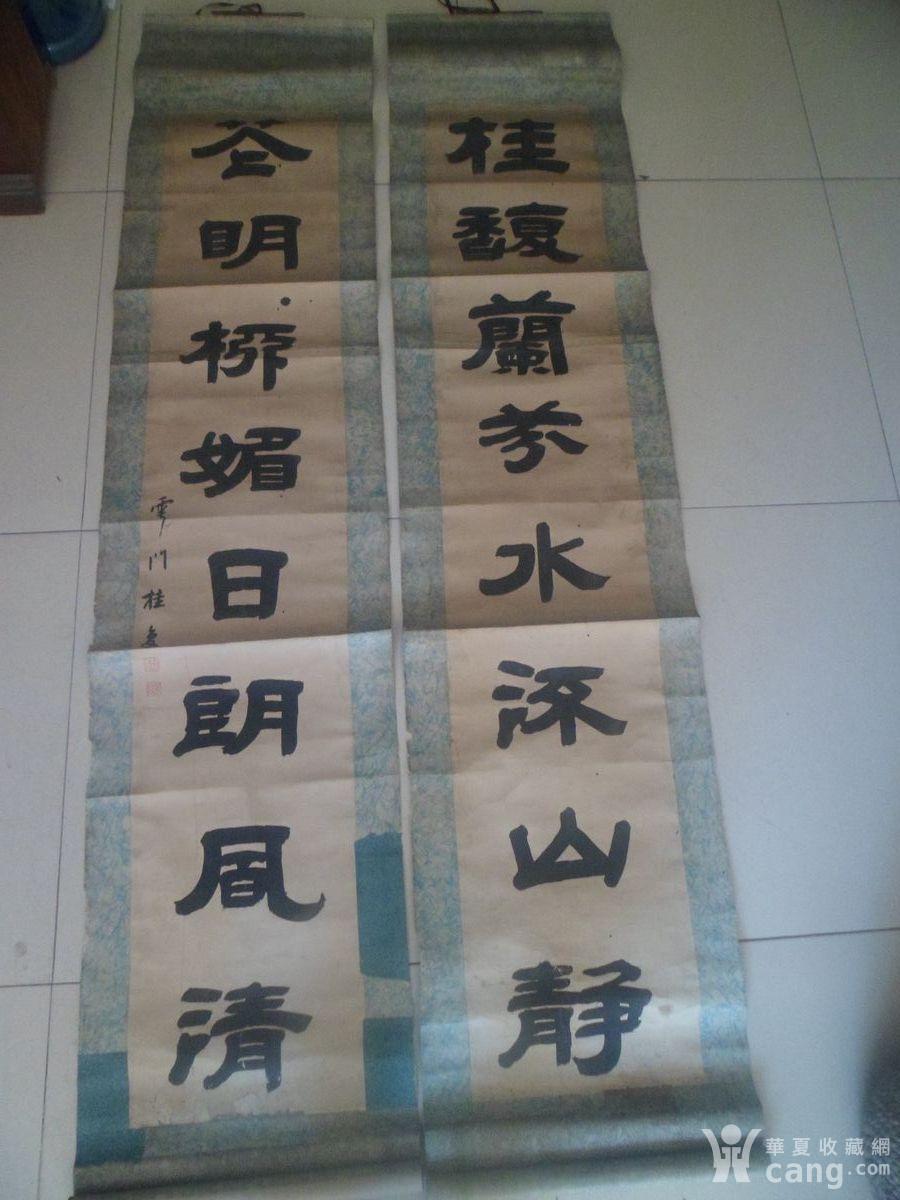 桂馥蘭芬水深山静
花明柳媚日朗風清
雩門桂
華夏收藏網
cang.com